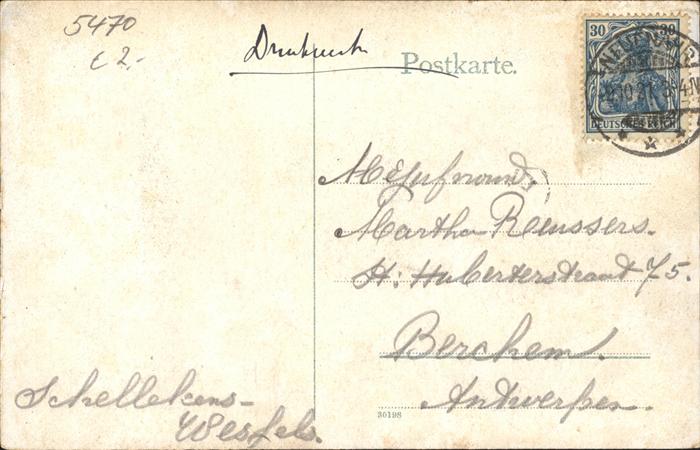 5470
€ 2,-
Drucksache
Postkarte.
30 30
DEUTSCHES REICH
10 21
Mejufvrouw.
Martha Reussers.
H. Huberterstraat 75.
Berchem.
Antwerpen.
Schellekens-
Wessels.
30198